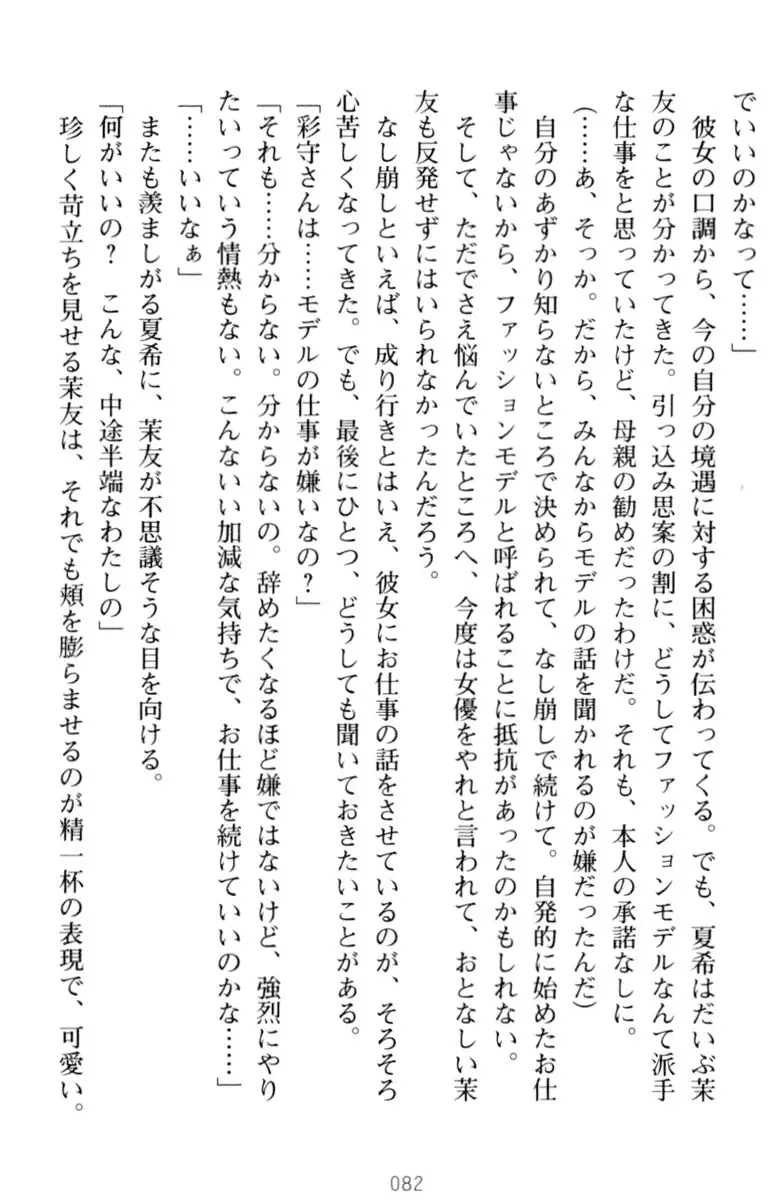 でいいのかなって……」
　彼女の口調から、今の自分の境遇に対する困惑が伝わってくる。でも、夏希はだいぶ茉
友のことが分かってきた。引っ込み思案の割に、どうしてファッションモデルなんて派手
な仕事をと思っていたけど、母親の勧めだったわけだ。それも、本人の承諾なしに。
（……あ、そっか。だから、みんなからモデルの話を聞かれるのが嫌だったんだ）
　自分のあずかり知らないところで決められて、なし崩しで続けて。自発的に始めたお仕
事じゃないから、ファッションモデルと呼ばれることに抵抗があったのかもしれない。
　そして、ただでさえ悩んでいたところへ、今度は女優をやれと言われて、おとなしい茉
友も反発せずにはいられなかったんだろう。
　なし崩しといえば、成り行きとはいえ、彼女にお仕事の話をさせているのが、そろそろ
心苦しくなってきた。でも、最後にひとつ、どうしても聞いておきたいことがある。
「彩守さんは……モデルの仕事が嫌いなの？」
「それも……分からない。分からないの。辞めたくなるほど嫌ではないけど、強烈にやり
たいっていう情熱もない。こんないい加減な気持ちで、お仕事を続けていいのかな……」
「……いいなぁ」
　またも羨ましがる夏希に、茉友が不思議そうな目を向ける。
「何がいいの？　こんな、中途半端なわたしの」
　珍しく苛立ちを見せる茉友は、それでも頬を膨らませるのが精一杯の表現で、可愛い。
082